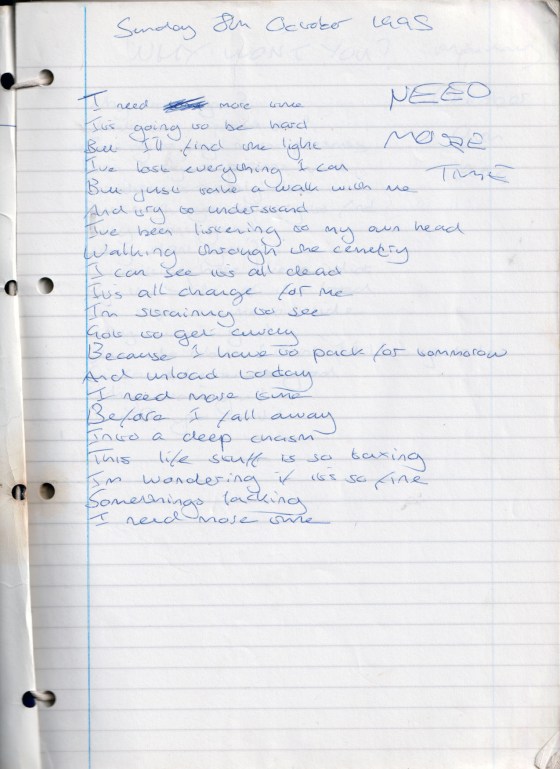 Sunday 8th October 1995
NEED
MORE
TIME
I need more time
It's going to be hard
But I'll find the light
I've lost everything I can
But just take a walk with me
And try to understand
I've been listening to my own head
Walking through the cemetry
I can see it's all dead
It's all change for me
I'm straining to see
Got to get away
Because I have to pack for tommorow
And unload today
I need more time
Before I fall away
Into a deep chasm
This life stuff is so taxing
I'm wondering if it's so fine
Somethings lacking
I need more time